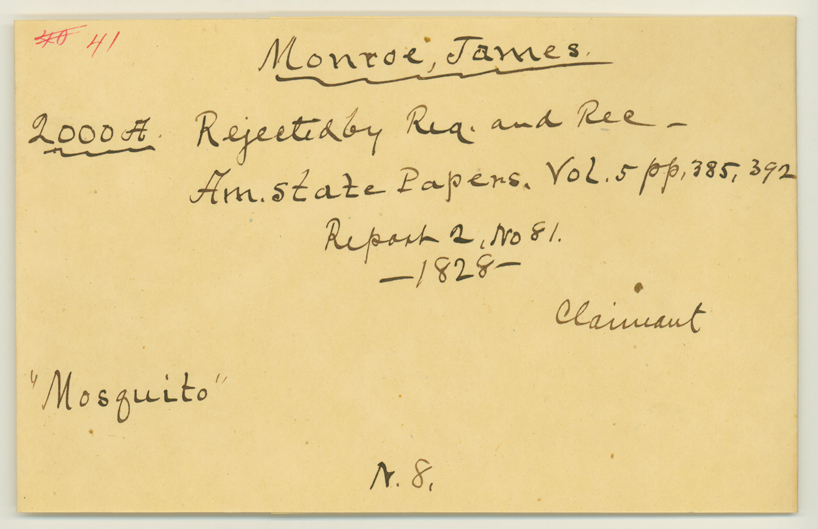 40 41
Monroe, James.
2000 A. Rejected by Reg. and Rec -
Am. State Papers. Vol. 5 pp, 385, 392
Report 2, No 81.
- 1828 -
Claimant
"Mosquito"
N. 8.